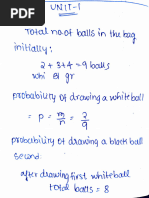 UNIT-1
Total no of balls in the bag
initially:
2+3+4=9 balls
whi bl gr
probability of drawing a white ball
= p = m/n = 2/9
probability of drawing a black ball
second
after drawing first white ball
total balls = 8